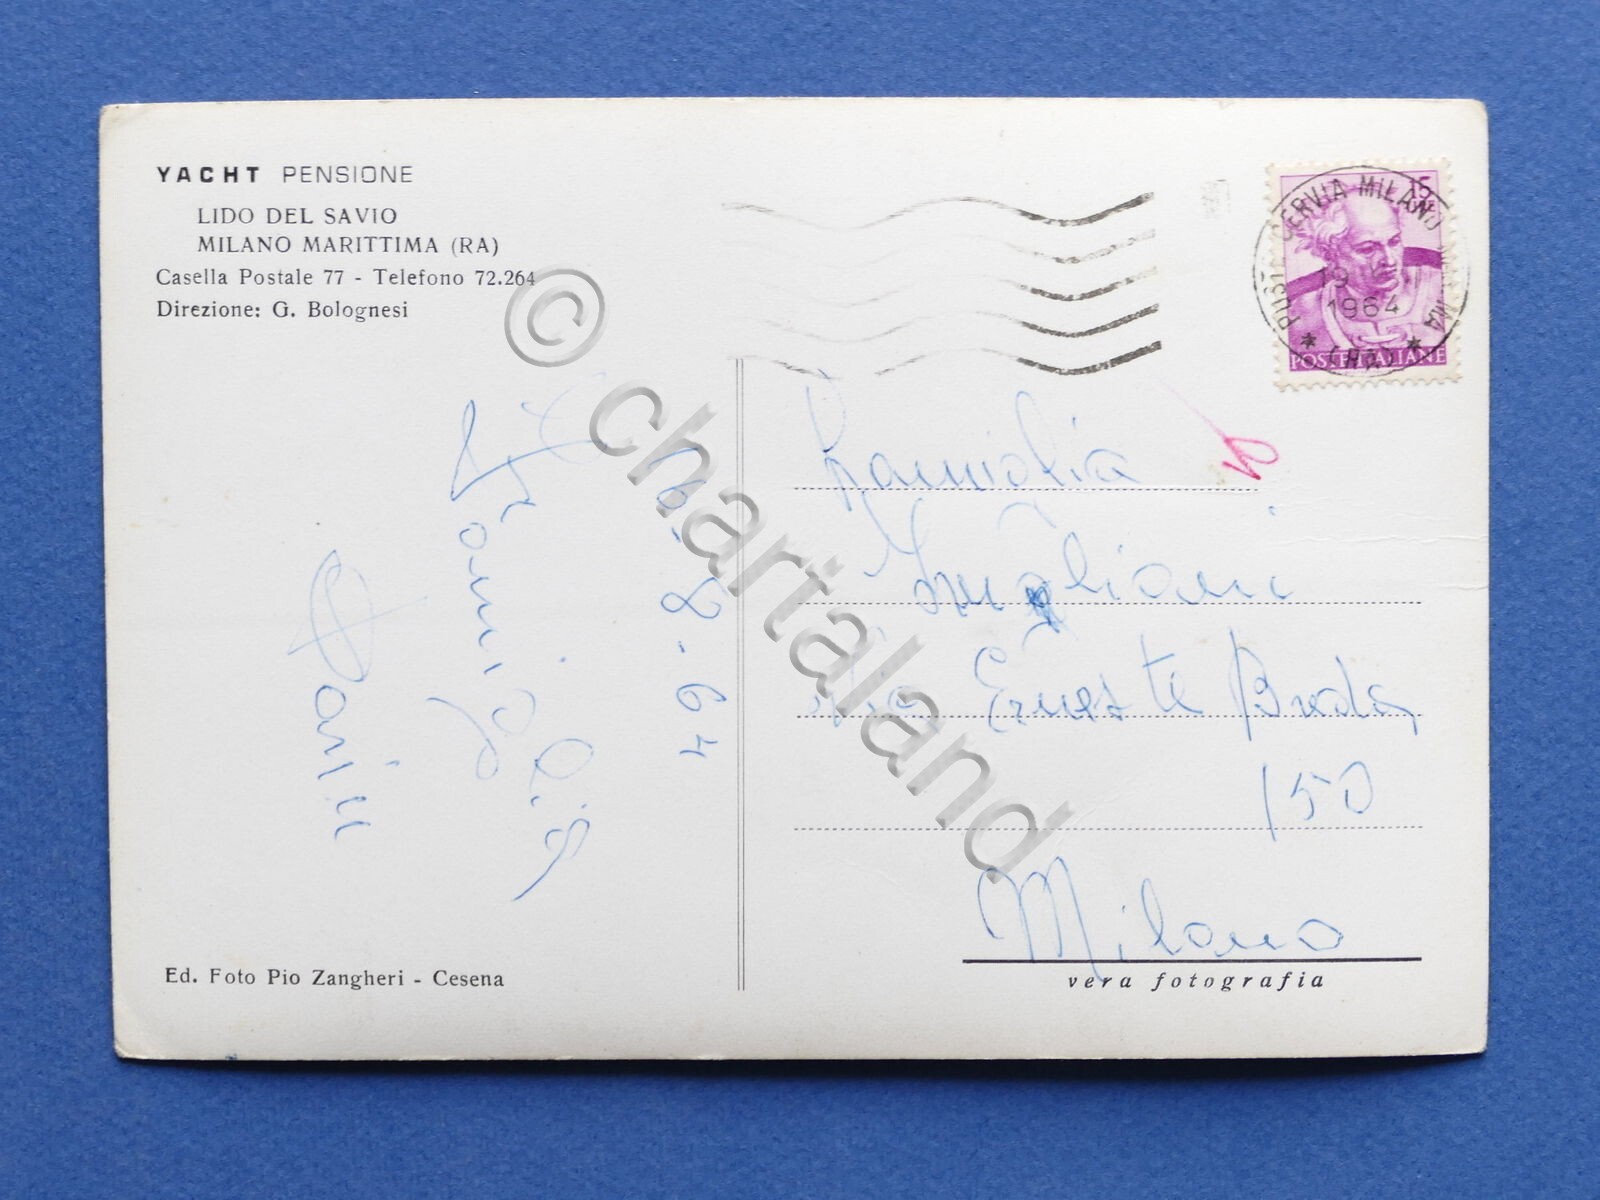 YACHT PENSIONE
LIDO DEL SAVIO
MILANO MARITTIMA (RA)
Casella Postale 77 - Telefono 72.264
Direzione: G. Bolognesi
8-64
Famiglia
Ed. Foto Pio Zangheri - Cesena
15
CERVIA MILANO
19
1964
(RA)
POSTE ITALIANE
Famiglia
Via Ernesto Breda
150
Milano
vera fotografia
© chartaland